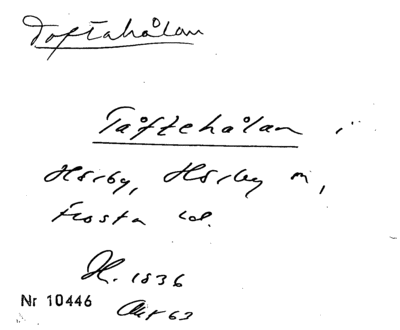 Toftahålan
Tåftehålan i
Hörby, Hörby sn,
Frosta hd.
1836
Nr 10446
Akt 63